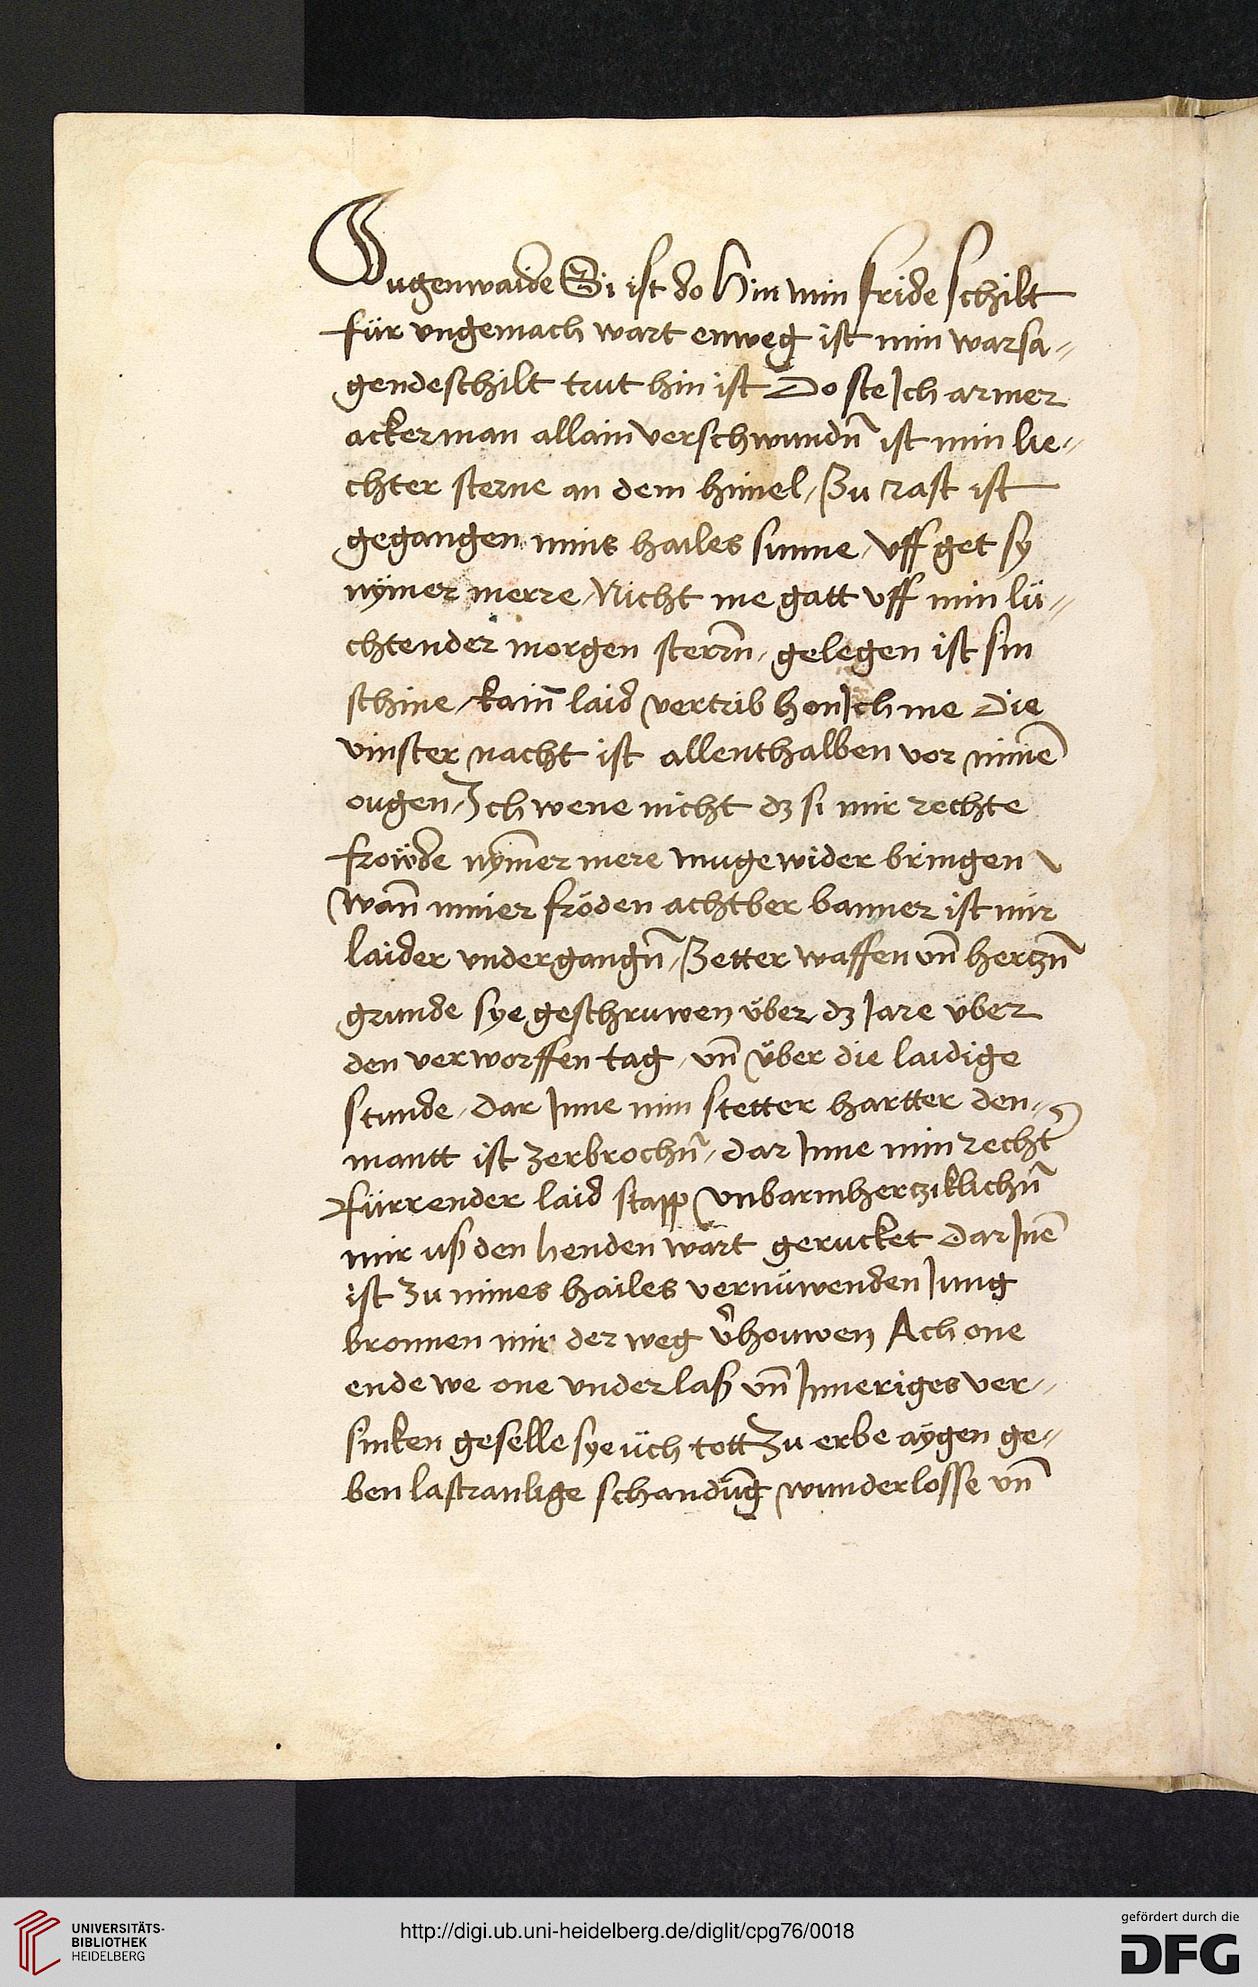 Ougenwaide Si ist do hin min fride schilt
für ungemach wart enweg ist min warsa-
gendeschilt trut hin ist Do ste Ich armer
ackerman allain verschwundn̄ ist min lie-
chter sterne an dem himel / Zu rast ist
gegangen mins hailes sunne / uff get sy
nymer merre / Nicht me gatt uff min lü-
chtender morgen sterrn̄ / gelegen ist sin
schine / kain̄ laid vertrib hon Ich me Die
vinster nacht ist allenthalben vor minē
ougen / Ich wene nicht dz si mir rechte
fröwde nymer mere muge wider bringen
wan̄ miner fröden achtber banner ist mir
laider undergangn̄ / Zetter waffen vn̄ hertzn̄
grunde sye geschruwen über dz Jare über
den verworffen tag / vn̄ über die laidige
stunde / dar Inne min stetter hartter den-
mantt ist zerbrochn̄ / dar Inne min recht̄
fürrender laid stapp unbarmhertziklichn̄
mir uß den henden wart gerucket Dar Inē
ist zu mines hailes vernüwenden Jung
bronnen mir der weg v̄houwen Ach one
ende we one underlaß vn̄ Inneriges ver-
sinken geselle sye üch tott Zu erbe aygen ge-
ben lastranlige schandūg wunderlosse vn̄
UNIVERSITÄTS-
BIBLIOTHEK
HEIDELBERG
http://digi.ub.uni-heidelberg.de/diglit/cpg76/0018
gefördert durch die
DFG